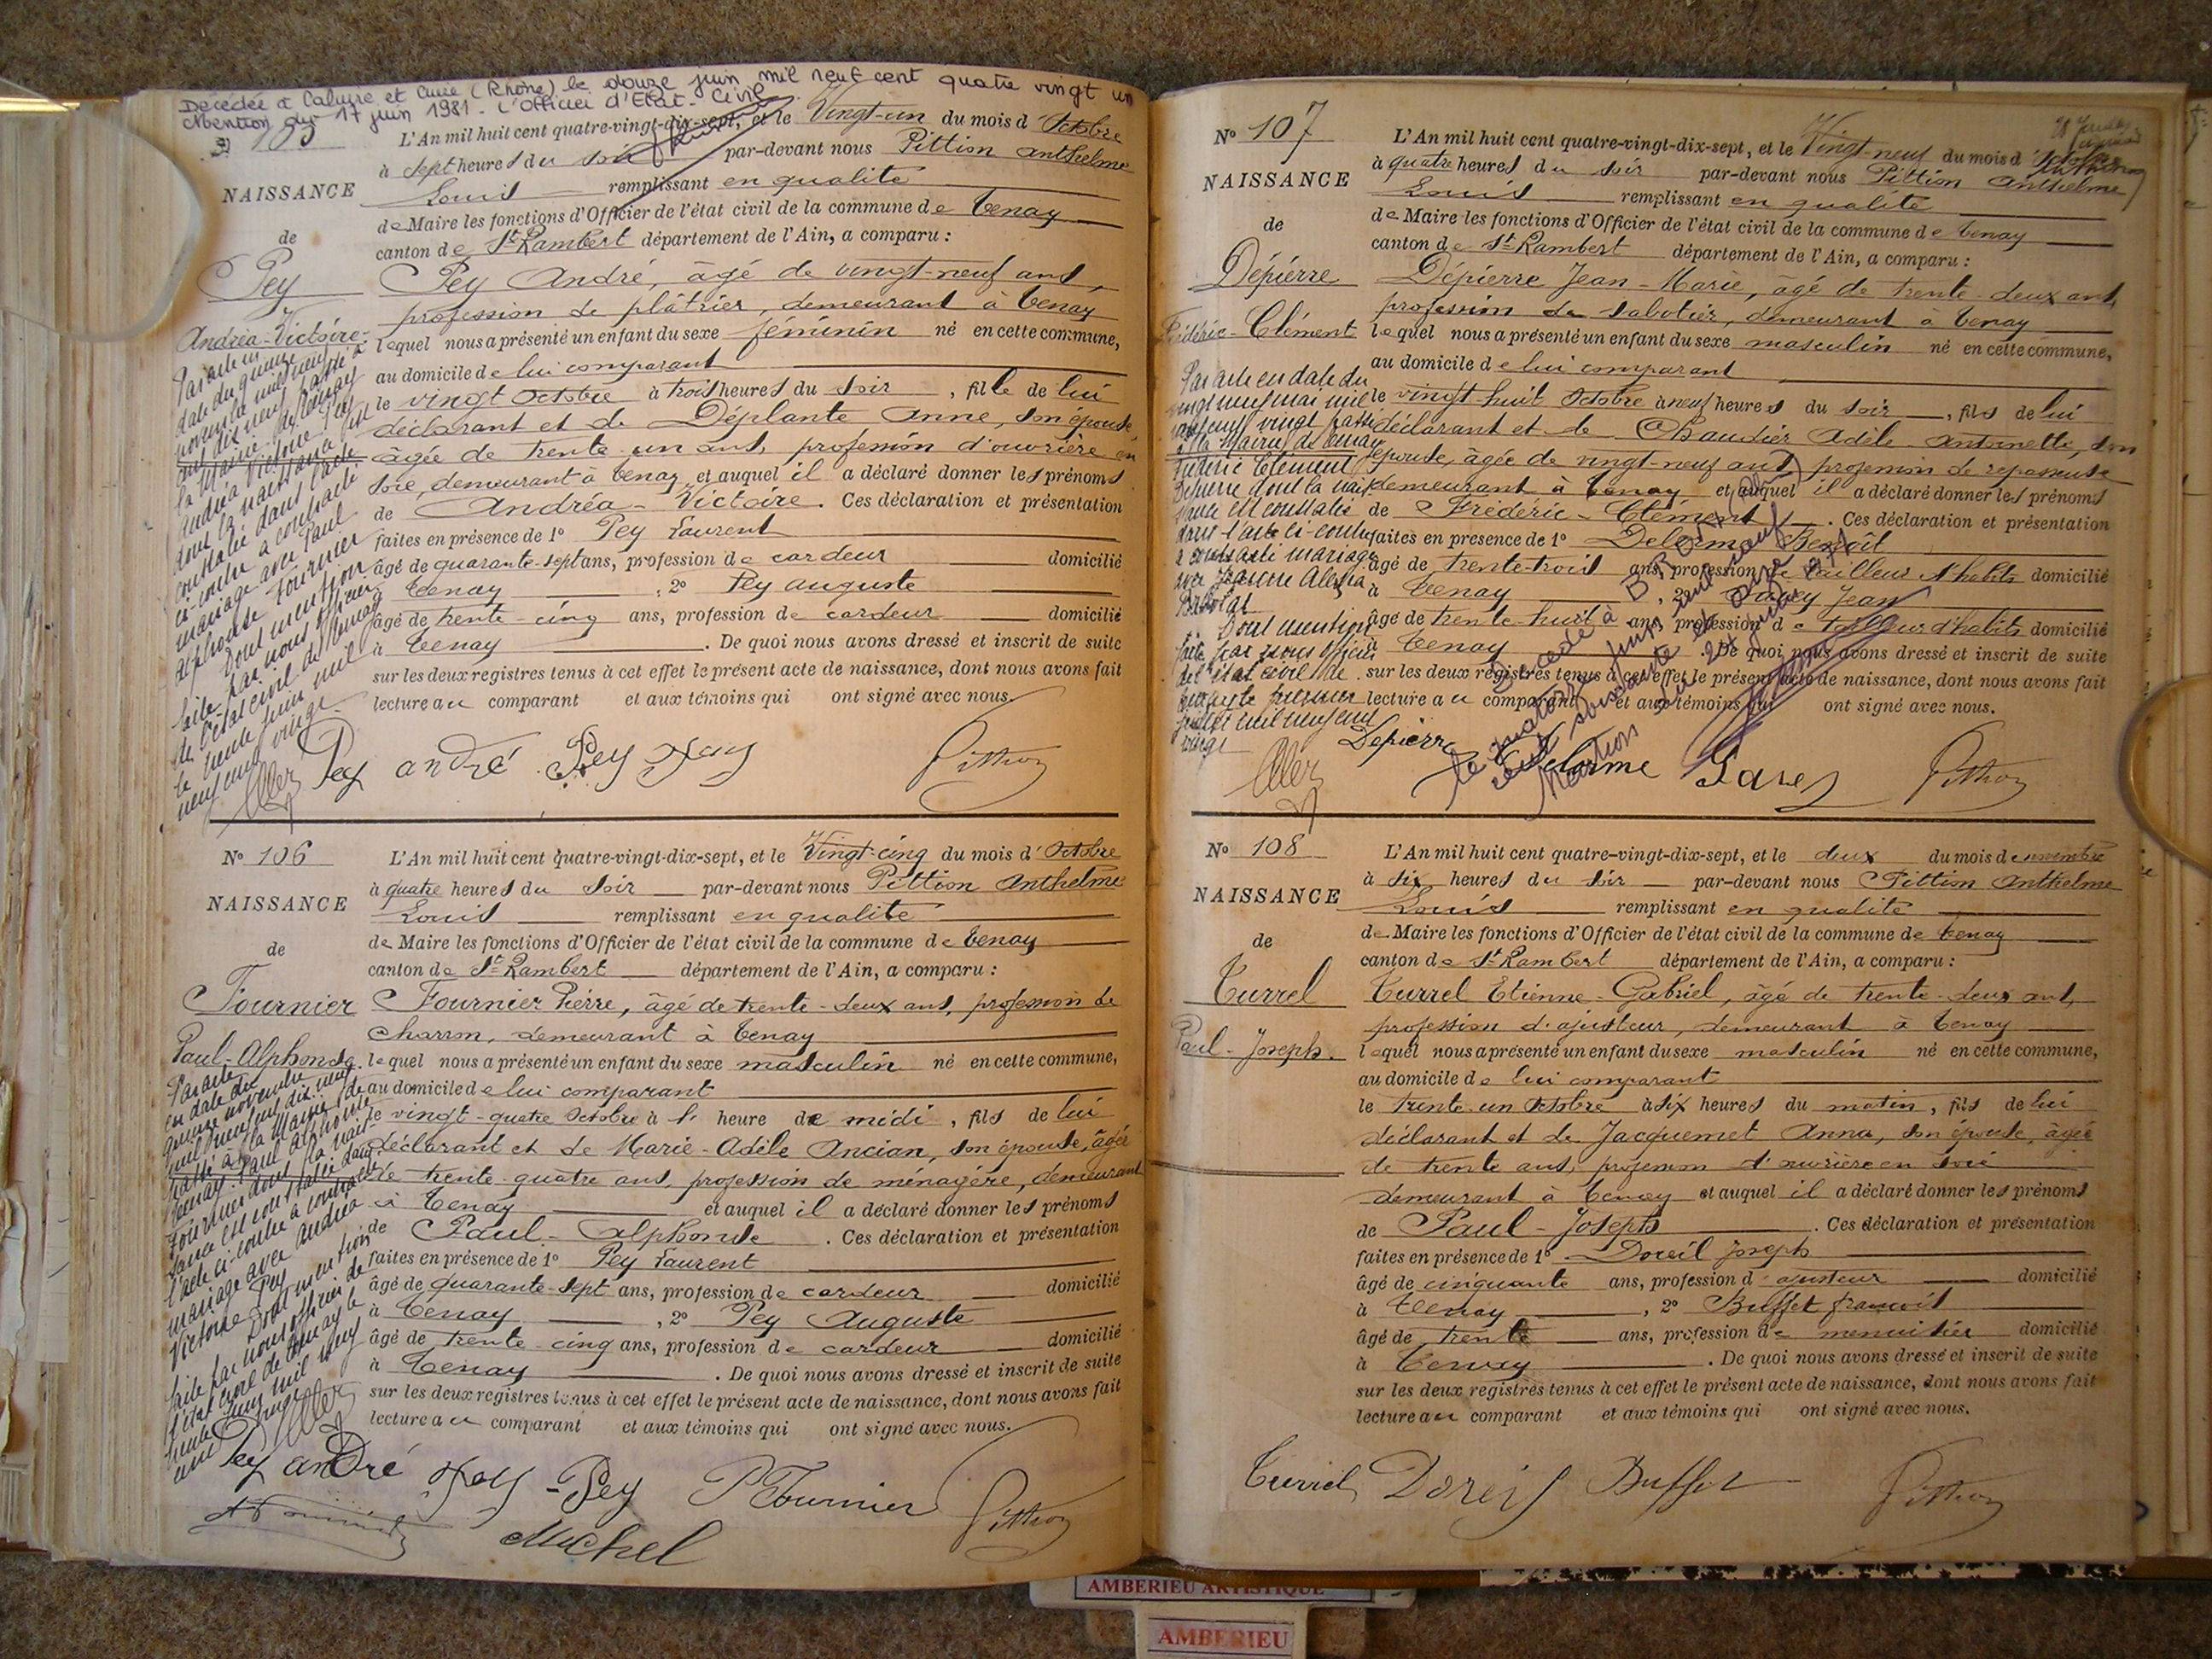 Décédée à Caluire et Cuire (Rhône) le douze juin mil neuf cent quatre vingt un
Mention du 17 juin 1981. L'Officier d'Etat-Civil
105
L'An mil huit cent quatre-vingt-dix-sept, et le Vingt-un du mois d'Octobre
à sept heures du soir par-devant nous Pittion Anthelme
NAISSANCE
Louis remplissant en qualité
de Maire les fonctions d'Officier de l'état civil de la commune de Tenay
de
canton de St Rambert département de l'Ain, a comparu :
Pey
Pey André, âgé de vingt-neuf ans,
profession de plâtrier, demeurant à Tenay
Andréa-Victoire
lequel nous a présenté un enfant du sexe féminin né en cette commune,
au domicile de lui comparant
le vingt Octobre à trois heures du soir, fille de lui
déclarant et de Déplante Anne, son épouse
âgée de trente un ans, profession d'ouvrière en
soie, demeurant à Tenay et auquel il a déclaré donner les prénoms
de Andréa-Victoire. Ces déclaration et présentation
faites en présence de 1° Pey Laurent
âgé de quarante-sept ans, profession de cardeur domicilié
à Tenay, 2° Pey Auguste
âgé de trente-cinq ans, profession de cardeur domicilié
à Tenay. De quoi nous avons dressé et inscrit de suite
sur les deux registres tenus à cet effet le présent acte de naissance, dont nous avons fait
lecture au comparant et aux témoins qui ont signé avec nous.
Par acte en
date du quinze
novembre mil neuf
cent dix neuf passé à
la Mairie de Tenay
Andréa Victoire Pey
dont la naissance est
constatée dans l'acte
ci-contre a contracté
mariage avec Paul
Alphonse Fournier
Dont mention
faite par nous officier
de l'état civil de Tenay
le trente juin mil
neuf cent vingt
Pey André Pey Pey Pittion
N° 106
L'An mil huit cent quatre-vingt-dix-sept, et le Vingt-cinq du mois d'Octobre
à quatre heures du soir par-devant nous Pittion Anthelme
NAISSANCE
Louis remplissant en qualité
de Maire les fonctions d'Officier de l'état civil de la commune de Tenay
de
canton de St Rambert département de l'Ain, a comparu :
Fournier
Fournier Pierre, âgé de trente-deux ans, profession de
charron, demeurant à Tenay
Paul-Alphonse
lequel nous a présenté un enfant du sexe masculin né en cette commune,
au domicile de lui comparant
le vingt-quatre Octobre à 1 heure de midi, fils de lui
déclarant et de Marie-Adèle Ancian, son épouse, âgée
de trente-quatre ans, profession de ménagère, demeurant
à Tenay et auquel il a déclaré donner les prénoms
de Paul-Alphonse. Ces déclaration et présentation
faites en présence de 1° Pey Laurent
âgé de quarante-sept ans, profession de cardeur domicilié
à Tenay, 2° Pey Auguste
âgé de trente-cinq ans, profession de cardeur domicilié
à Tenay. De quoi nous avons dressé et inscrit de suite
sur les deux registres tenus à cet effet le présent acte de naissance, dont nous avons fait
lecture au comparant et aux témoins qui ont signé avec nous.
Par acte
en date du
quinze novembre
mil neuf cent dix neuf
passé à la Mairie de
Tenay Paul Alphonse
Fournier dont la nais-
sance est constatée dans
l'acte ci-contre a contracté
mariage avec Andréa
Victoire Pey
Dont mention
faite par nous officier de
l'état civil de Tenay le
trente juin mil neuf
cent vingt
Pey André Pey Pey P Fournier Pittion
Michel
N° 107
L'An mil huit cent quatre-vingt-dix-sept, et le Vingt-neuf du mois d'Octobre
à quatre heures du soir par-devant nous Pittion Anthelme
NAISSANCE
Louis remplissant en qualité
de Maire les fonctions d'Officier de l'état civil de la commune de Tenay
de
canton de St Rambert département de l'Ain, a comparu :
Dépierre
Dépierre Jean-Marie, âgé de trente-deux ans,
profession de sabotier, demeurant à Tenay
Frédéric-Clément
lequel nous a présenté un enfant du sexe masculin né en cette commune,
au domicile de lui comparant
le vingt-huit Octobre à neuf heures du soir, fils de lui
déclarant et de Chaudier Adèle Antoinette, son
épouse, âgée de vingt-neuf ans, profession de repasseuse
demeurant à Tenay et auquel il a déclaré donner les prénoms
de Frédéric-Clément. Ces déclaration et présentation
faites en présence de 1° Delorme Benoît
âgé de trente-trois ans, profession de tailleur d'habits domicilié
à Tenay, 2° Jean
âgé de trente-huit ans, profession de tailleur d'habits domicilié
à Tenay. De quoi nous avons dressé et inscrit de suite
sur les deux registres tenus à cet effet le présent acte de naissance, dont nous avons fait
lecture au comparant et aux témoins qui ont signé avec nous.
Par acte en date du
vingt neuf mai mil
neuf cent vingt passé
à la Mairie de Tenay
Frédéric Clément
Dépierre dont la nais-
sance est constatée
dans l'acte ci-contre
a contracté mariage
avec Jeanne
Dont mention
faite par nous officier
de l'état civil de
premier
juillet mil neuf cent
vingt
Décédé à
le quatorze juin mil neuf
cent soixante
Mention du juin
Depierre Delorme Pittion
N° 108
L'An mil huit cent quatre-vingt-dix-sept, et le deux du mois de novembre
à six heures du soir par-devant nous Pittion Anthelme
NAISSANCE
Louis remplissant en qualité
de Maire les fonctions d'Officier de l'état civil de la commune de Tenay
de
canton de St Rambert département de l'Ain, a comparu :
Turrel
Turrel Etienne-Gabriel, âgé de trente-deux ans,
profession d'ajusteur, demeurant à Tenay
Paul-Joseph.
lequel nous a présenté un enfant du sexe masculin né en cette commune,
au domicile de lui comparant
le trente-un Octobre à six heures du matin, fils de lui
déclarant et de Jacquemet Anna, son épouse, âgée
de trente ans, profession d'ouvrière en soie
demeurant à Tenay et auquel il a déclaré donner les prénoms
de Paul-Joseph. Ces déclaration et présentation
faites en présence de 1° Doreil Joseph
âgé de cinquante ans, profession d'ajusteur domicilié
à Tenay, 2° Buffet François
âgé de trente ans, profession de menuisier domicilié
à Tenay. De quoi nous avons dressé et inscrit de suite
sur les deux registres tenus à cet effet le présent acte de naissance, dont nous avons fait
lecture au comparant et aux témoins qui ont signé avec nous.
Turrel Doreil Buffet Pittion
AMBERIEU ARTISTIQUE
AMBERIEU